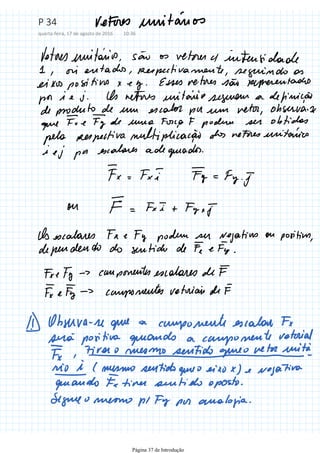 P 34
Vetores unitários
quarta-feira, 17 de agosto de 2016 10:36
Vetores unitários, são os vetores c/ intensidade
1, orientados, respectivamente, segundo os
eixos positivo x e y. Esses vetores são representados
por i e j. Os vetores unitário seguem a definição
de produto de um escalar por um vetor, observa-se
que Fx e Fy de uma Força F podem ser obtidas
pela respectiva multiplicação dos vetores unitários
i e j por escalares adequados.
F̅x = Fx i̅ F̅y = Fy . j̅
ou F̅ = Fx i̅ + Fy . j̅
Os escalares Fx e Fy podem ser negativos ou positivos,
dependendo do sentido de F̅x e F̅y.
Fx e Fy -> componentes escalares de F̅
F̅x e F̅y -> componentes vetoriais de F̅
Observa-se que a componente escalar Fx
será positiva quando a componente vetorial
F̅x, tiver o mesmo sentido que o vetor unitá
rio i (mesmo sentido que o eixo x) e negativa
quando F̅x tiver sentido oposto.
Segue o mesmo p/ Fy por analogia.
Página 37 de Introdução